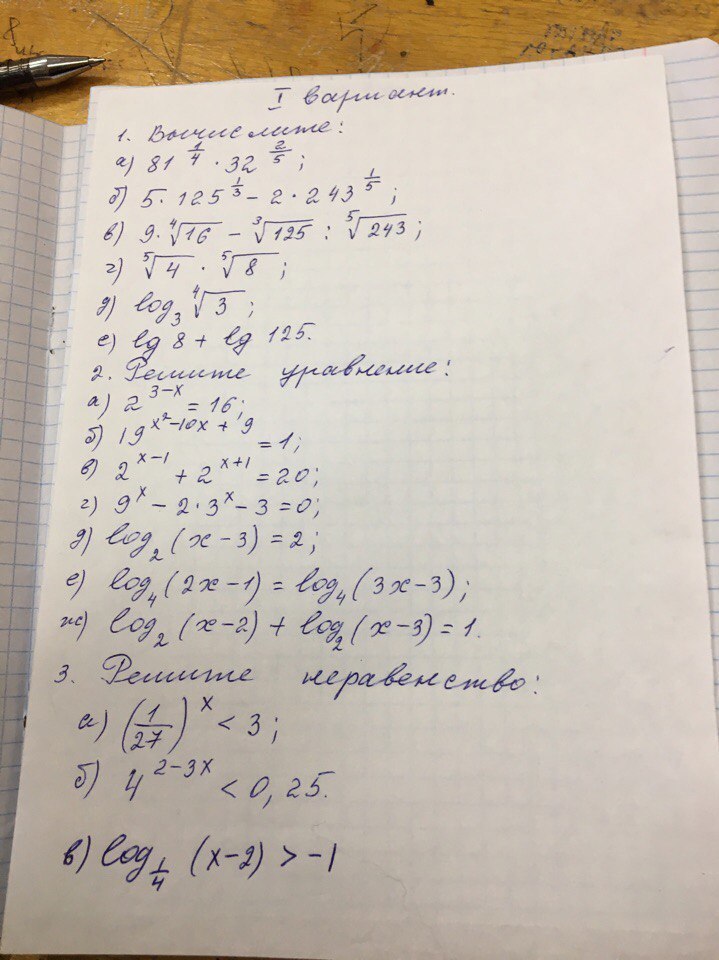 I вариант.
1. Вычислите:
а) 81^(1/4) · 32^(2/5);
б) 5 · 125^(1/3) − 2 · 243^(1/5);
в) 9 · ⁴√16 − ³√125 : ⁵√243;
г) ⁵√4 · ⁵√8;
д) log₃ ⁴√3;
е) lg 8 + lg 125.
2. Решите уравнение:
а) 2^(3−x) = 16;
б) 19^(x²−10x+9) = 1;
в) 2^(x−1) + 2^(x+1) = 20;
г) 9^x − 2·3^x − 3 = 0;
д) log₂(x−3) = 2;
е) log₄(2x−1) = log₄(3x−3);
ж) log₂(x−2) + log₂(x−3) = 1.
3. Решите неравенство:
а) (1/27)^x < 3;
б) 4^(2−3x) < 0,25.
в) log_(1/4) (x−2) > −1